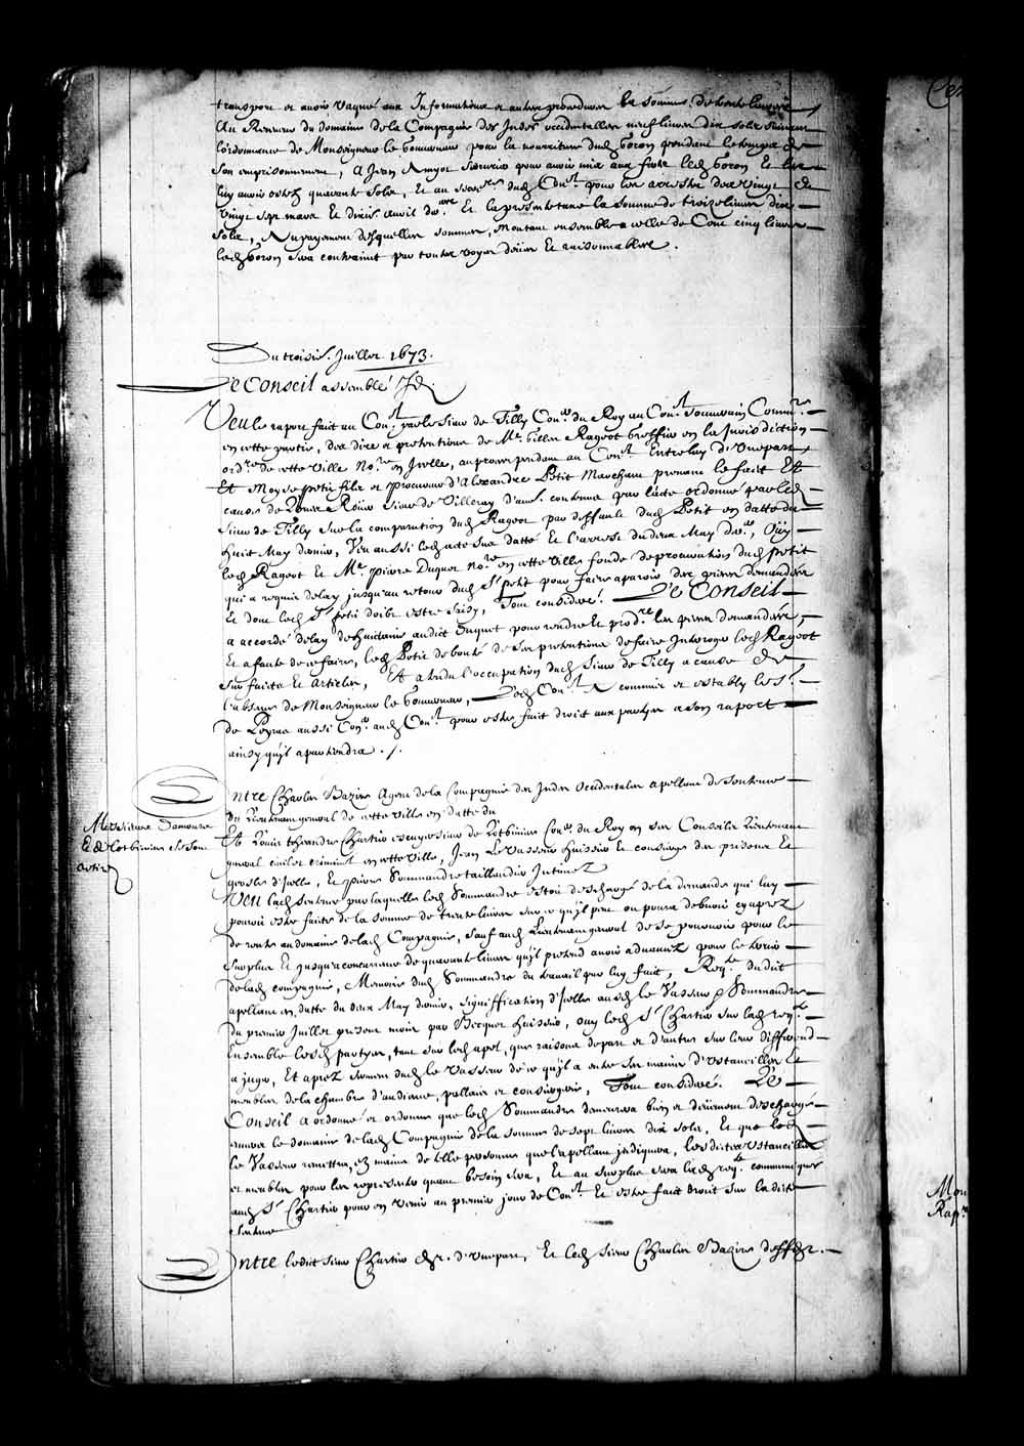 transport et avoir vaqué aux Informations et autres procedures la somme de trente livres
Au Receveur du domaine de la Compagnie des Indes occidentalles neuf livres dix solz suivant
l'ordonnance de Monseigneur le Gouverneur pour la nourriture dud boron pendant le temps de
son emprisonnement, A Jean
luy avoir ostez quarante solz, Et au
vingt sept mars Et dixis. avril der. Et la presentene la somme de treize livres dix
solz, Au payement desquelles sommes, montant ensemble a celle de Cent cinq livres
led boron sera contrainct par toutes voyes deües Et raisonnables.
Du troisie. Juillet 1673.
Le Conseil assemblé
Veu le raport fait au Conl. par le Sieur de Tilly Coner. du Roy au Conl. Souverain Commre.
en cette partie, des dires et pretentions de Me. Gilles Rageot Greffier en la Jurisdiction
ordre. de cette ville Nore. en Icelle, au proces pendant au Conl. Entre luy d'Unepart
Et Moyse petit filz et procureur d'Alexandre Petit Marchand prenant le fait Et
cause de Louis Roüer Sieur de Villeray d'aut. contenue par l'acte ordonné par led
Sieur de Tilly sur la comparution dud Rageot par deffault dud Petit en datte du
huict May dernier, Veu aussi led acte sus datté Et l'arrest du deux May der., Oüy
led Rageot Et Me. pierre Duquet nore. en cette ville fondé de procuration dud petit
qui a requis delay jusqu'au retour dud Sr. petit pour faire aparoir des pieces demandées
Et dont led Sr. petit doibt estre saisy, Tout consideré. Le Conseil
a accordé delay de huictaine audict Duquet pour rendre et prodre. les pieces demandées,
Et a faute de ce faire, led Petit debouté de ses pretentions de faire Interroger led Rageot
sur faicts Et articles, Et attendu l'occupation dud Sieur de Tilly a cause de
l'absence de Monseigneur le Gouverneur, led Conl. A commis et estably le Sr.
de Peyras aussi Coner. aud Conl. pour estre fait droit aux partyes a son raport
ainsy qu'il apartiendra ./.
Entre Charles Bazire Agent de la Compagnie des Indes Occidentales apellant de sentence
du Lieutenant general de cette ville en datte du
Messieurs Damours
Et de Lotbiniere se sont
retirez
Et Louis theandre Chartier escuyer sieur de Lotbiniere Coner. du Roy en ses Conseilz Lieutenant
general civil et criminel en cette ville, Jean Levasseur huissier Et concierge des prisons Et
geosles d'Icelle, Et pierre Sommandre taillandier Intimez
Veu lad sentence par laquelle led Sommandre estoit deschargé de la demande qui luy
pouroit estre faite de la somme de trente livres sur ce qu'il peut ou poura debvoir cy aprez
de rentes au domaine de lad Compagnie, sauf aud Lieutenant general de se pourvoir pour le
surplus Et jusqu'a concurrance de quarante livres qu'il pretend avoir advancez pour le
de lad compagnie, Memoire dud Sommandre du travail par luy fait, Reqte. dudit
apellant en datte du deux May dernier, signiffication d'Icelle ausd le Vasseur & Sommandre
du premier Juillet present mois par Becquet huissier, ouy led Sr. Chartier sur lad reqte.
Ensemble lesd partyes, tant sur led apel, que raisons de part et d'autre sur leur differend
a juger, Et aprez serment dud le Vasseur de ce qu'il a entre ses mains d'ustancilles Et
meubles de la chambre d'audiance, pallais et conciergerie, Tout consideré. Le
Conseil a ordonné et ordonne que led Sommandre demeurera bien et deüement deschargé
envers le domaine de lad Compagnie de la somme de sept livres dix solz, Et que led
le Vasseur remettra ez mains de telle personne que l'apellant jndiquera, lesdictes ustancilles
et meubles pour les representer quand besoin sera, Et au surplus sera lad reqte. communiquée
aud Sr. Chartier pour en venir au premier jour de Conl. Et estre fait droit sur ladicte
sentence
Entre ledict sieur Chartier der. d'Unepart, Et led sieur Charles Bazire deffder.
Mon
Rapr.